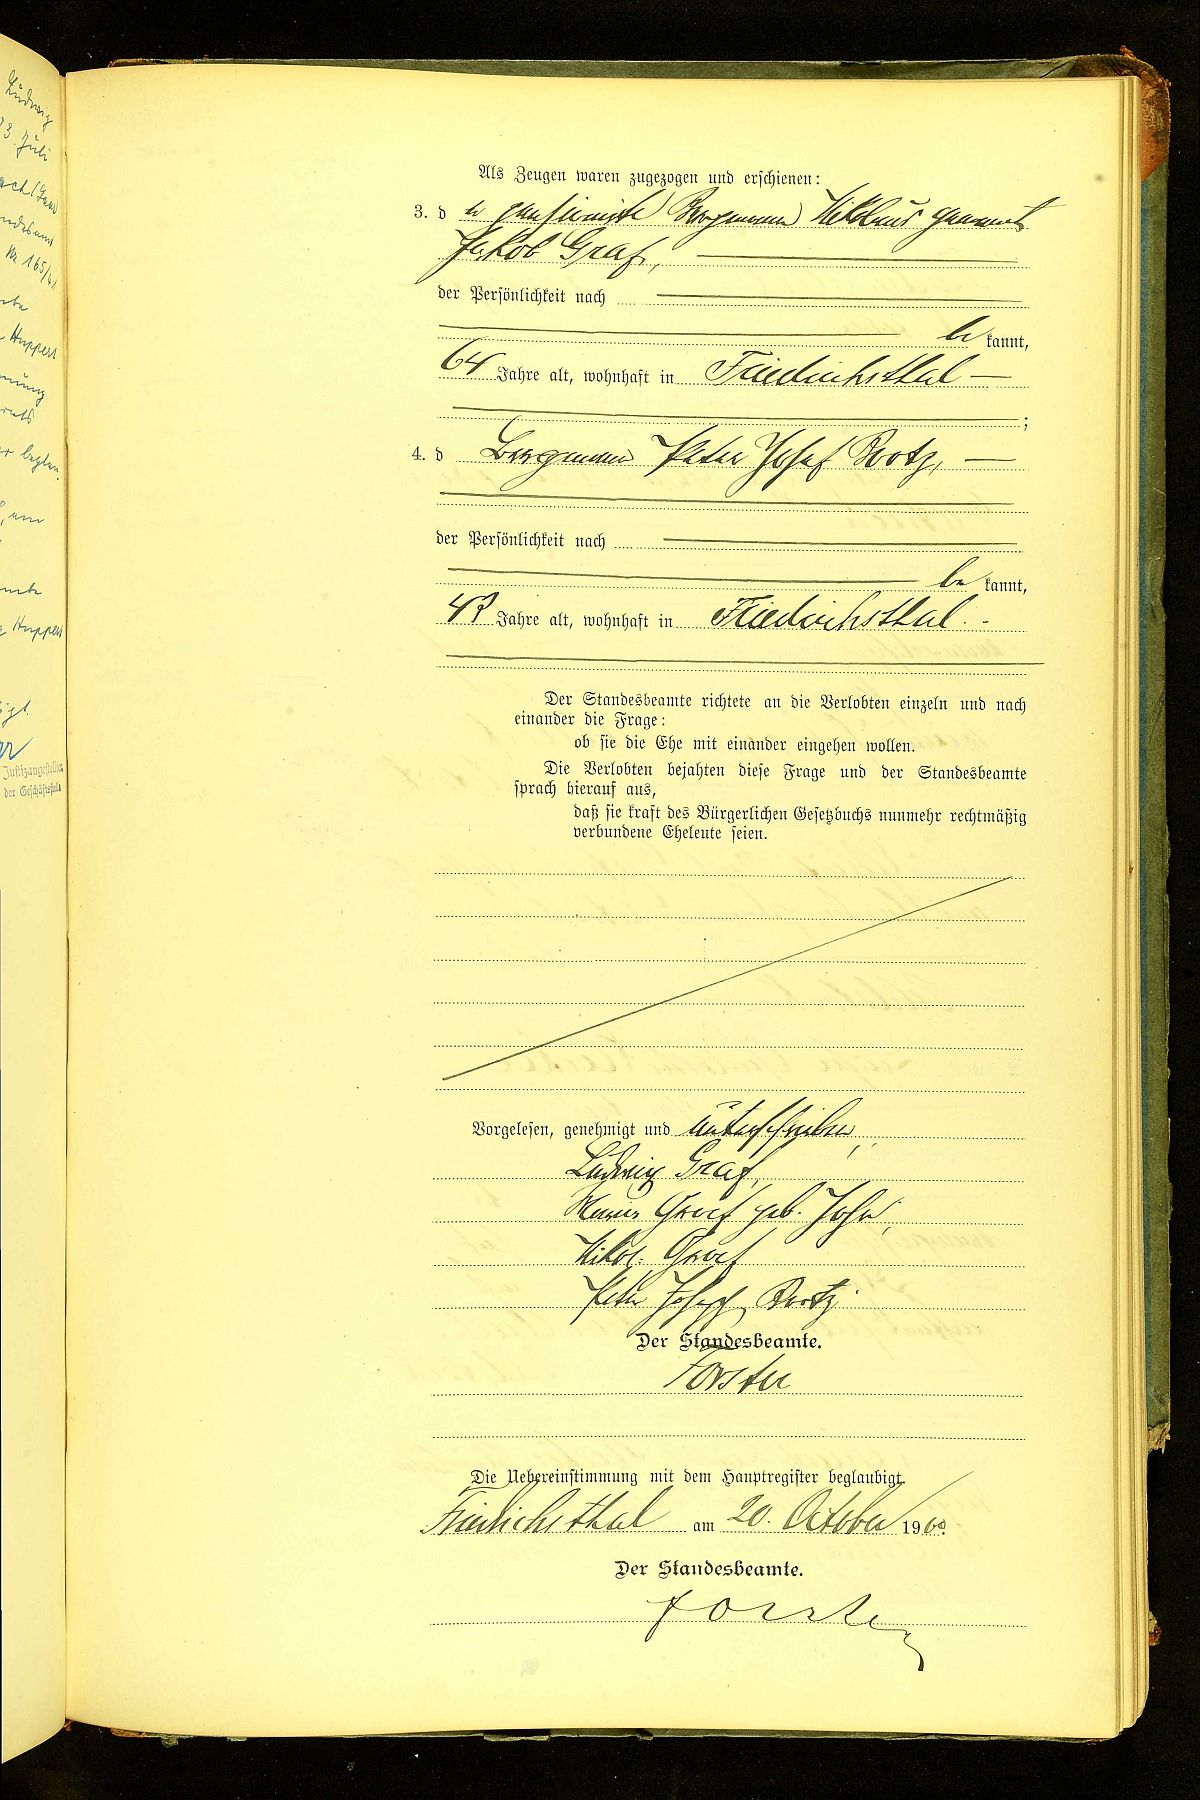 Ludwig
3. Juli
Nr 165/41
Huppert
Huppert
Justizangestellter
der Geschäftsstelle
Als Zeugen waren zugezogen und erschienen:
3. der pensionirte Bergmann Nikolaus genannt
Jakob Graf,
der Persönlichkeit nach
be kannt,
64 Jahre alt, wohnhaft in Friedrichsthal
;
4. d Bergmann Peter Josef Bootz,
der Persönlichkeit nach
be kannt,
Jahre alt, wohnhaft in Friedrichsthal.
Der Standesbeamte richtete an die Verlobten einzeln und nach
einander die Frage:
ob sie die Ehe mit einander eingehen wollen.
Die Verlobten bejahten diese Frage und der Standesbeamte
sprach hierauf aus,
daß sie kraft des Bürgerlichen Gesetzbuchs nunmehr rechtmäßig
verbundene Eheleute seien.
Vorgelesen, genehmigt und unterschrieben,
Ludwig Graf,
Maria Graf geb. John,
Nikol. Graf
Peter Joseph Bootz.
Der Standesbeamte.
Forster
Die Uebereinstimmung mit dem Hauptregister beglaubigt
Friedrichsthal am 20. October 1900.
Der Standesbeamte.
Forster